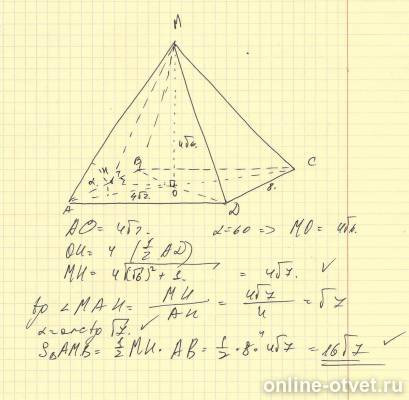 M
4√6.
B
C
8.
α
H
4√2.
O
A
D
AO = 4√2. α=60 => MO = 4√6.
OH = 4 (1/2 AD)
MH = 4√(√6)²+1. = 4√7. ✓
tg ∠MAH = MH/AH = 4√7/4 = √7
α=arctg √7. ✓
SΔAMB = 1/2 MH · AB = 1/2 · 8 · 4√7 = 16√7 ✓
online-otvet.ru